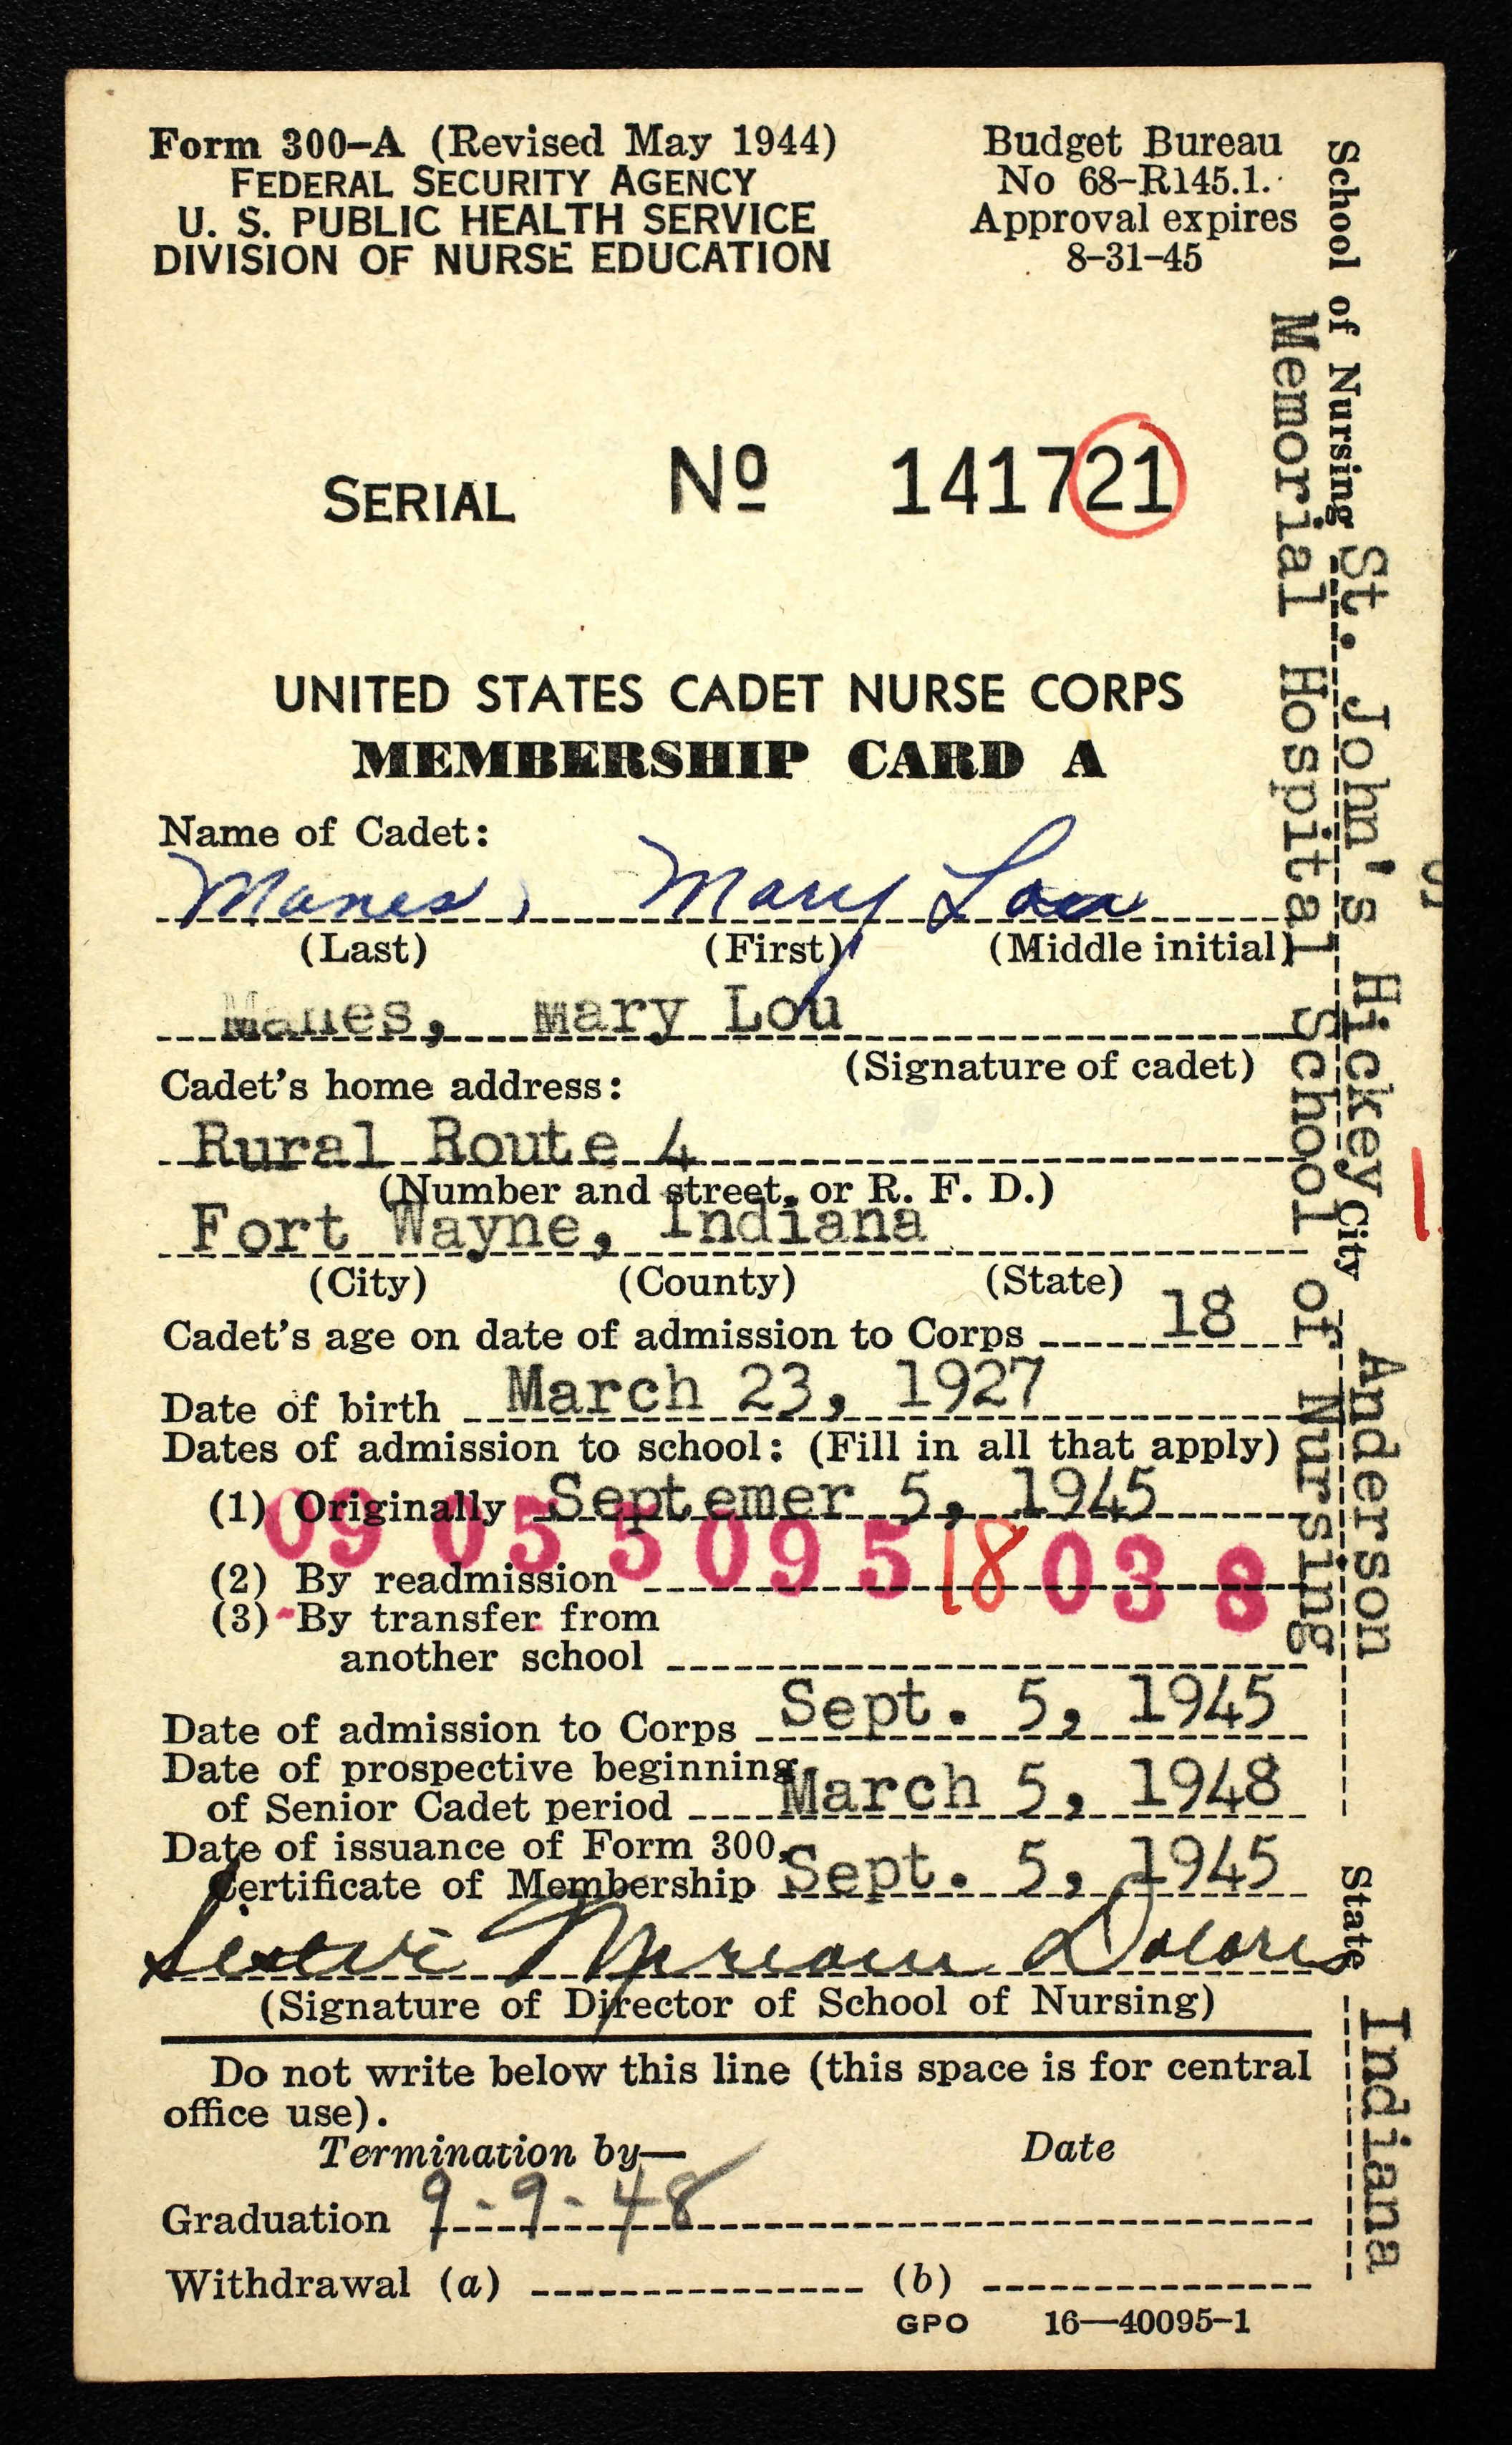 Form 300-A (Revised May 1944)
FEDERAL SECURITY AGENCY
U. S. PUBLIC HEALTH SERVICE
DIVISION OF NURSE EDUCATION
Budget Bureau
No 68-R145.1.
Approval expires
8-31-45
SERIAL No 141721
UNITED STATES CADET NURSE CORPS
MEMBERSHIP CARD A
Name of Cadet:
Manes, Mary Lou
(Last) (First) (Middle initial)
Manes, mary Lou
(Signature of cadet)
Cadet's home address:
Rural Route 4
(Number and street, or R. F. D.)
Fort Wayne, Indiana
(City) (County) (State)
Cadet's age on date of admission to Corps 18
Date of birth March 23, 1927
Dates of admission to school: (Fill in all that apply)
(1) Originally Septemer 5, 1945
09 05 5 09 5 18 03 8
(2) By readmission
(3) By transfer from
another school
Date of admission to Corps Sept. 5, 1945
Date of prospective beginning
of Senior Cadet period March 5, 1948
Date of issuance of Form 300,
Certificate of Membership Sept. 5, 1945
Sister Myriam Dolores
(Signature of Director of School of Nursing)
Do not write below this line (this space is for central
office use).
Termination by— Date
Graduation 9-9-48
Withdrawal (a) (b)
GPO 16—40095-1
School of Nursing St. John's Hickey City Anderson State Indiana
Memorial Hospital School of Nursing